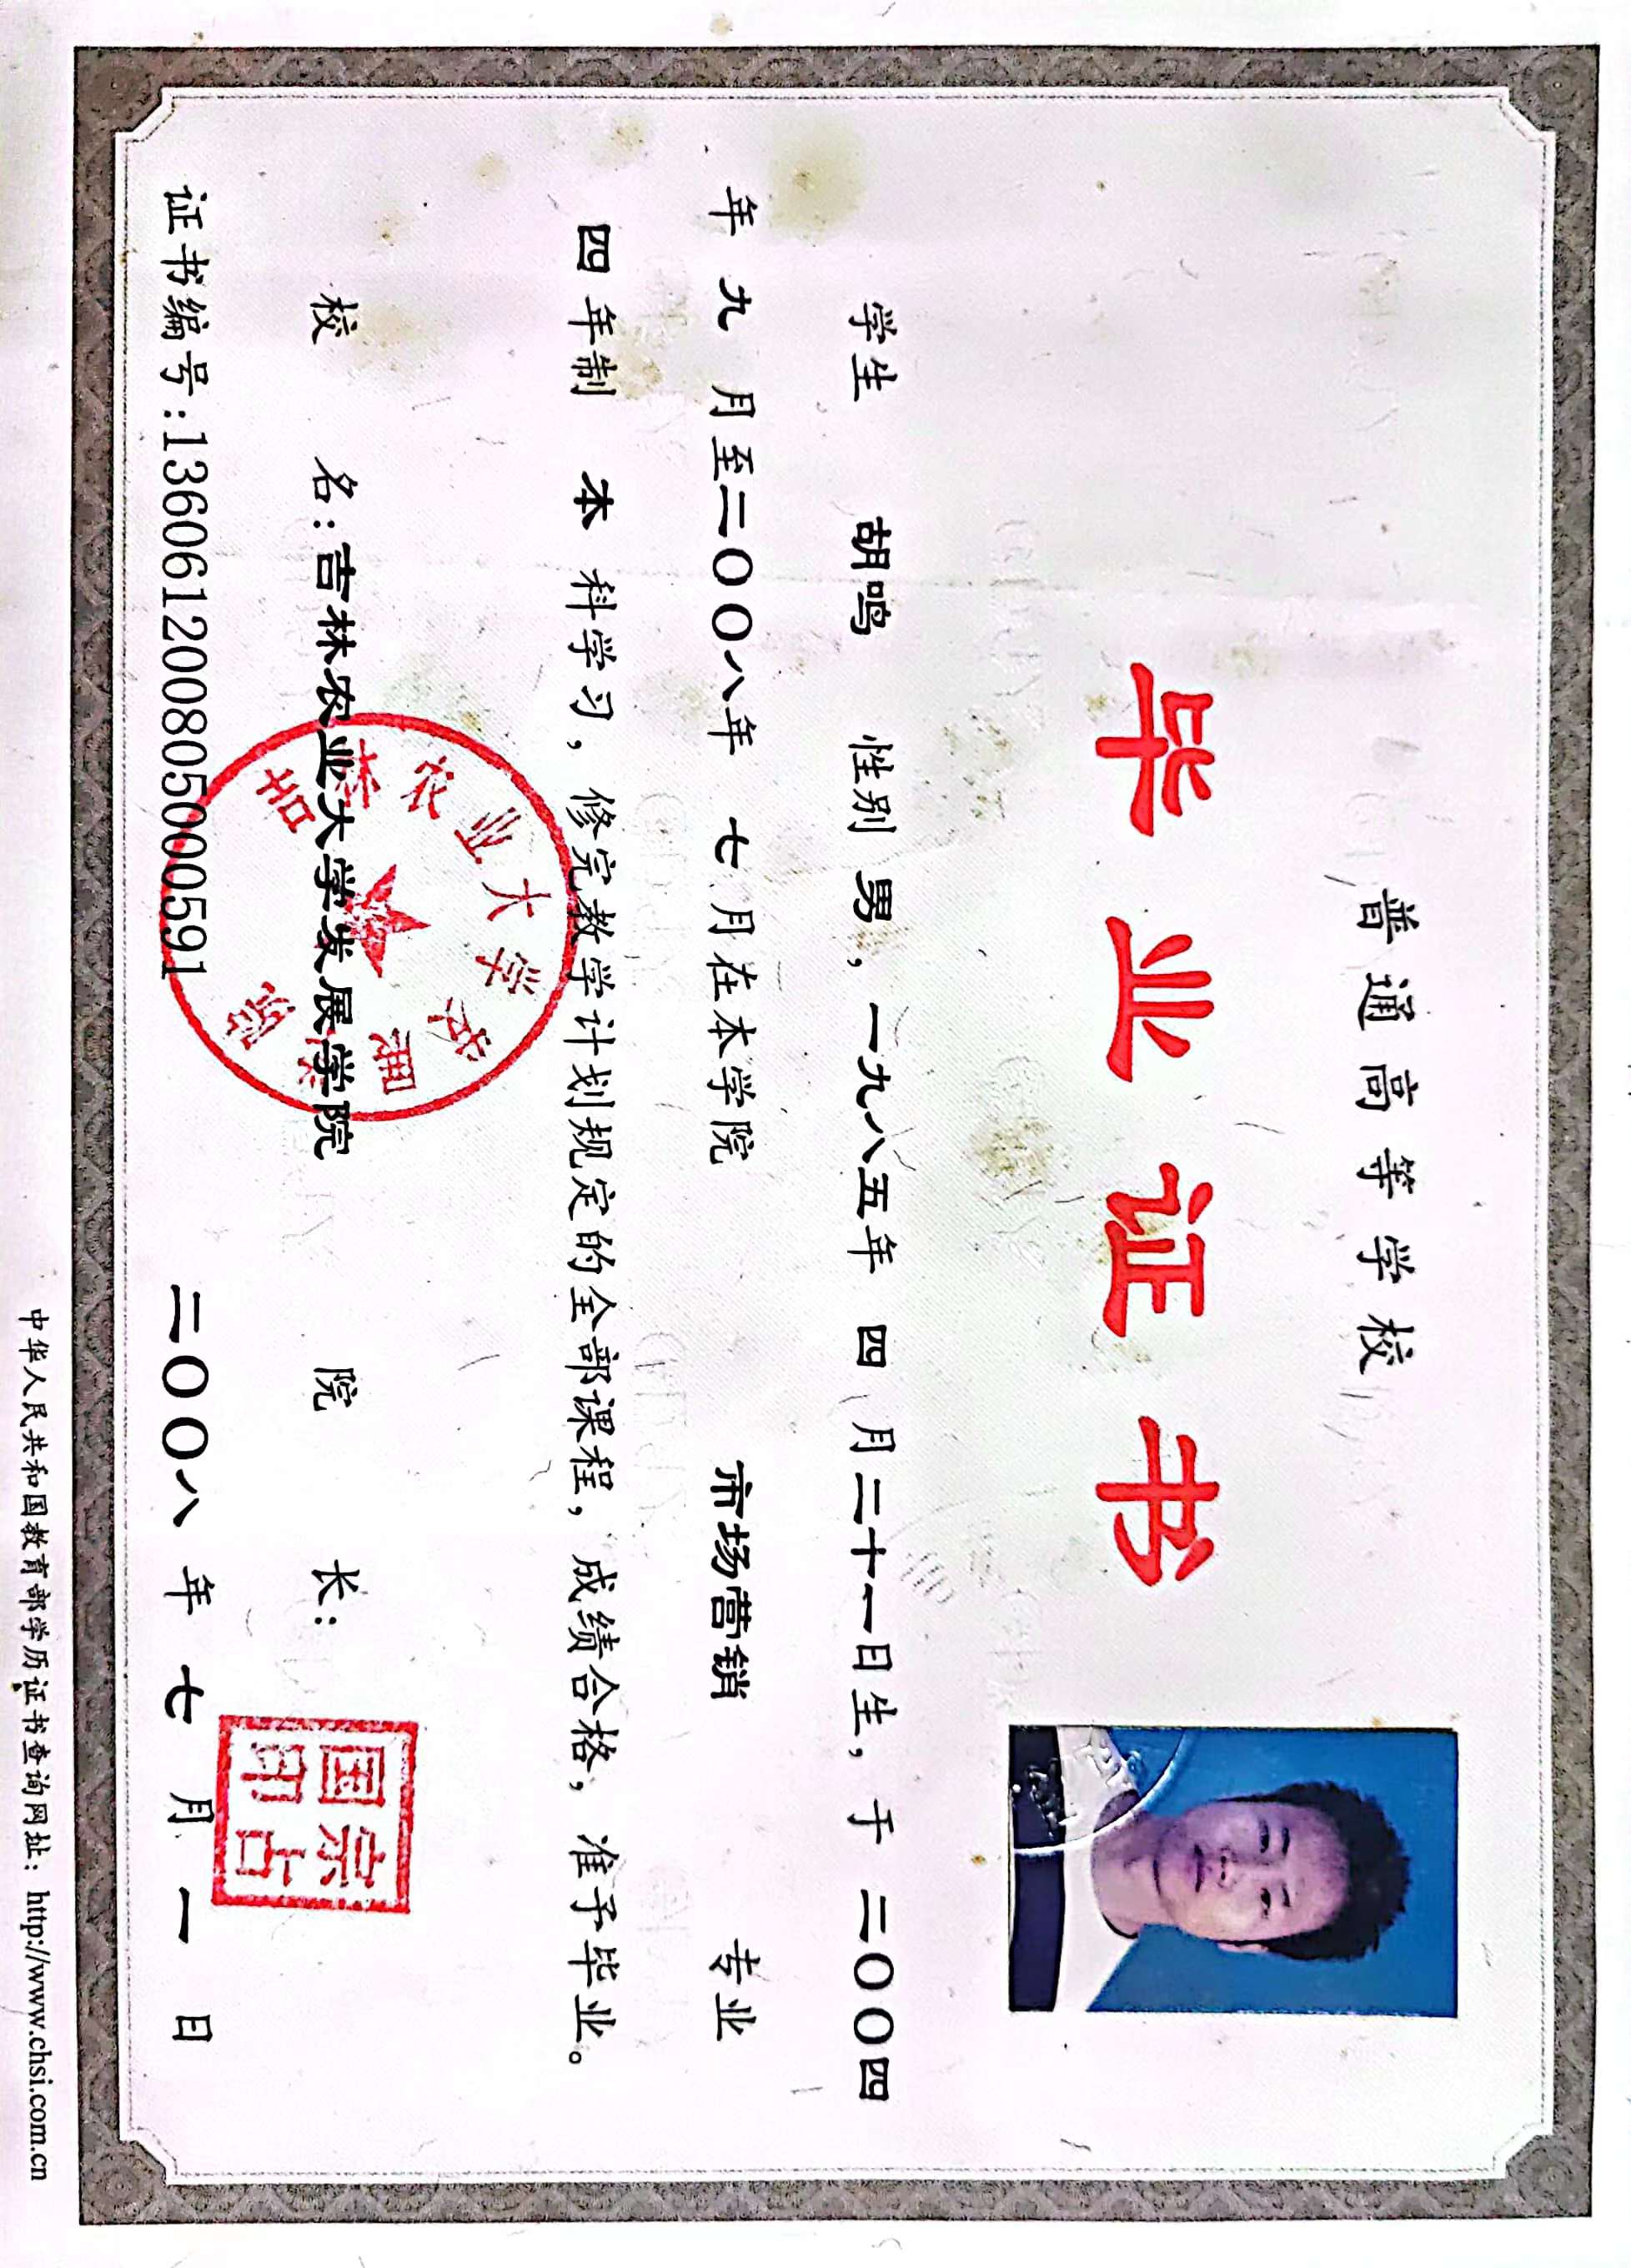 普通高等学校
毕业证书
学生 胡鸣 性别 男，一九八五年 四 月二十一日生，于 二〇〇四
年 九 月至二〇〇八年 七 月在本学院 市场营销 专业
四 年制 本 科学习，修完教学计划规定的全部课程，成绩合格，准予毕业。
校 名：吉林农业大学发展学院 院 长：
吉林农业大学发展学院
国宗
印占
证书编号：136061200805000591 二〇〇八 年 七 月 一 日
中华人民共和国教育部学历证书查询网址：http://www.chsi.com.cn